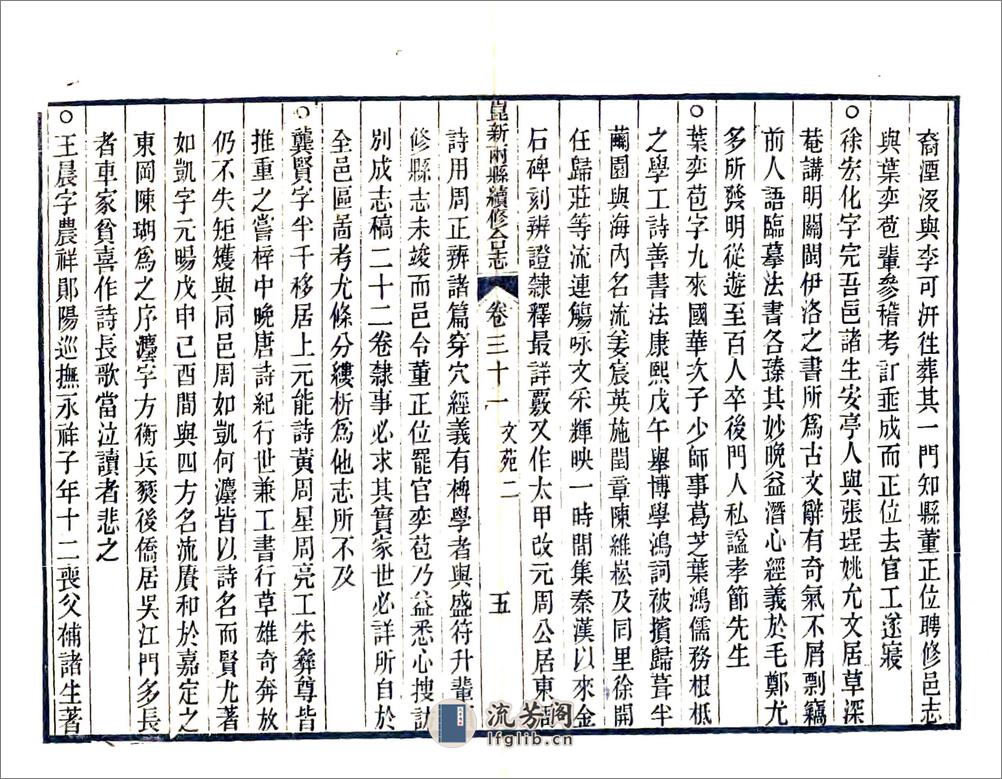 裔湮沒與李可汧徃葬其一門知縣董正位聘修邑志
與葉奕苞輩參稽考訂垂成而正位去官工遂寢
徐宏化字完吾邑諸生安亭人與張珵姚允文居草深
菴講明關閩伊洛之書所爲古文辭有奇氣不屑剽竊
前人語臨摹法書各臻其妙晚益潛心經義於毛鄭尤
多所發明從遊至百人卒後門人私諡孝節先生
葉奕苞字九來國華次子少師事葛芝葉鴻儒務根柢
之學工詩善書法康熙戊午舉博學鴻詞被擯歸葺半
繭園與海內名流姜宸英施閏章陳維崧及同里徐開
任歸莊等流連觴咏文采輝映一時間集秦漢以來金
石碑刻辨證隸釋最詳覈又作太甲改元周公居東
崑新兩縣續修合志 卷三十一 文苑二 五
詩用周正辨諸篇穿穴經義有椑學者與盛符升輩
修縣志未竣而邑令董正位罷官奕苞乃益悉心搜
別成志稿二十二卷隸事必求其實家世必詳所自於
全邑區啚考尤條分縷析爲他志所不及
龔賢字半千移居上元能詩黃周星周亮工朱彝尊皆
推重之嘗梓中晚唐詩紀行世兼工書行草雄奇奔放
仍不失矩矱與同邑周如凱何灋皆以詩名而賢尤著
如凱字元暘戊申己酉間與四方名流賡和於嘉定之
東岡陳瑚爲之序灋字方衡兵燹後僑居吳江門多長
者車家貧喜作詩長歌當泣讀者悲之
王晨字農祥鄖陽巡撫永祥子年十二喪父補諸生著
流芳阁
lfglib.cn